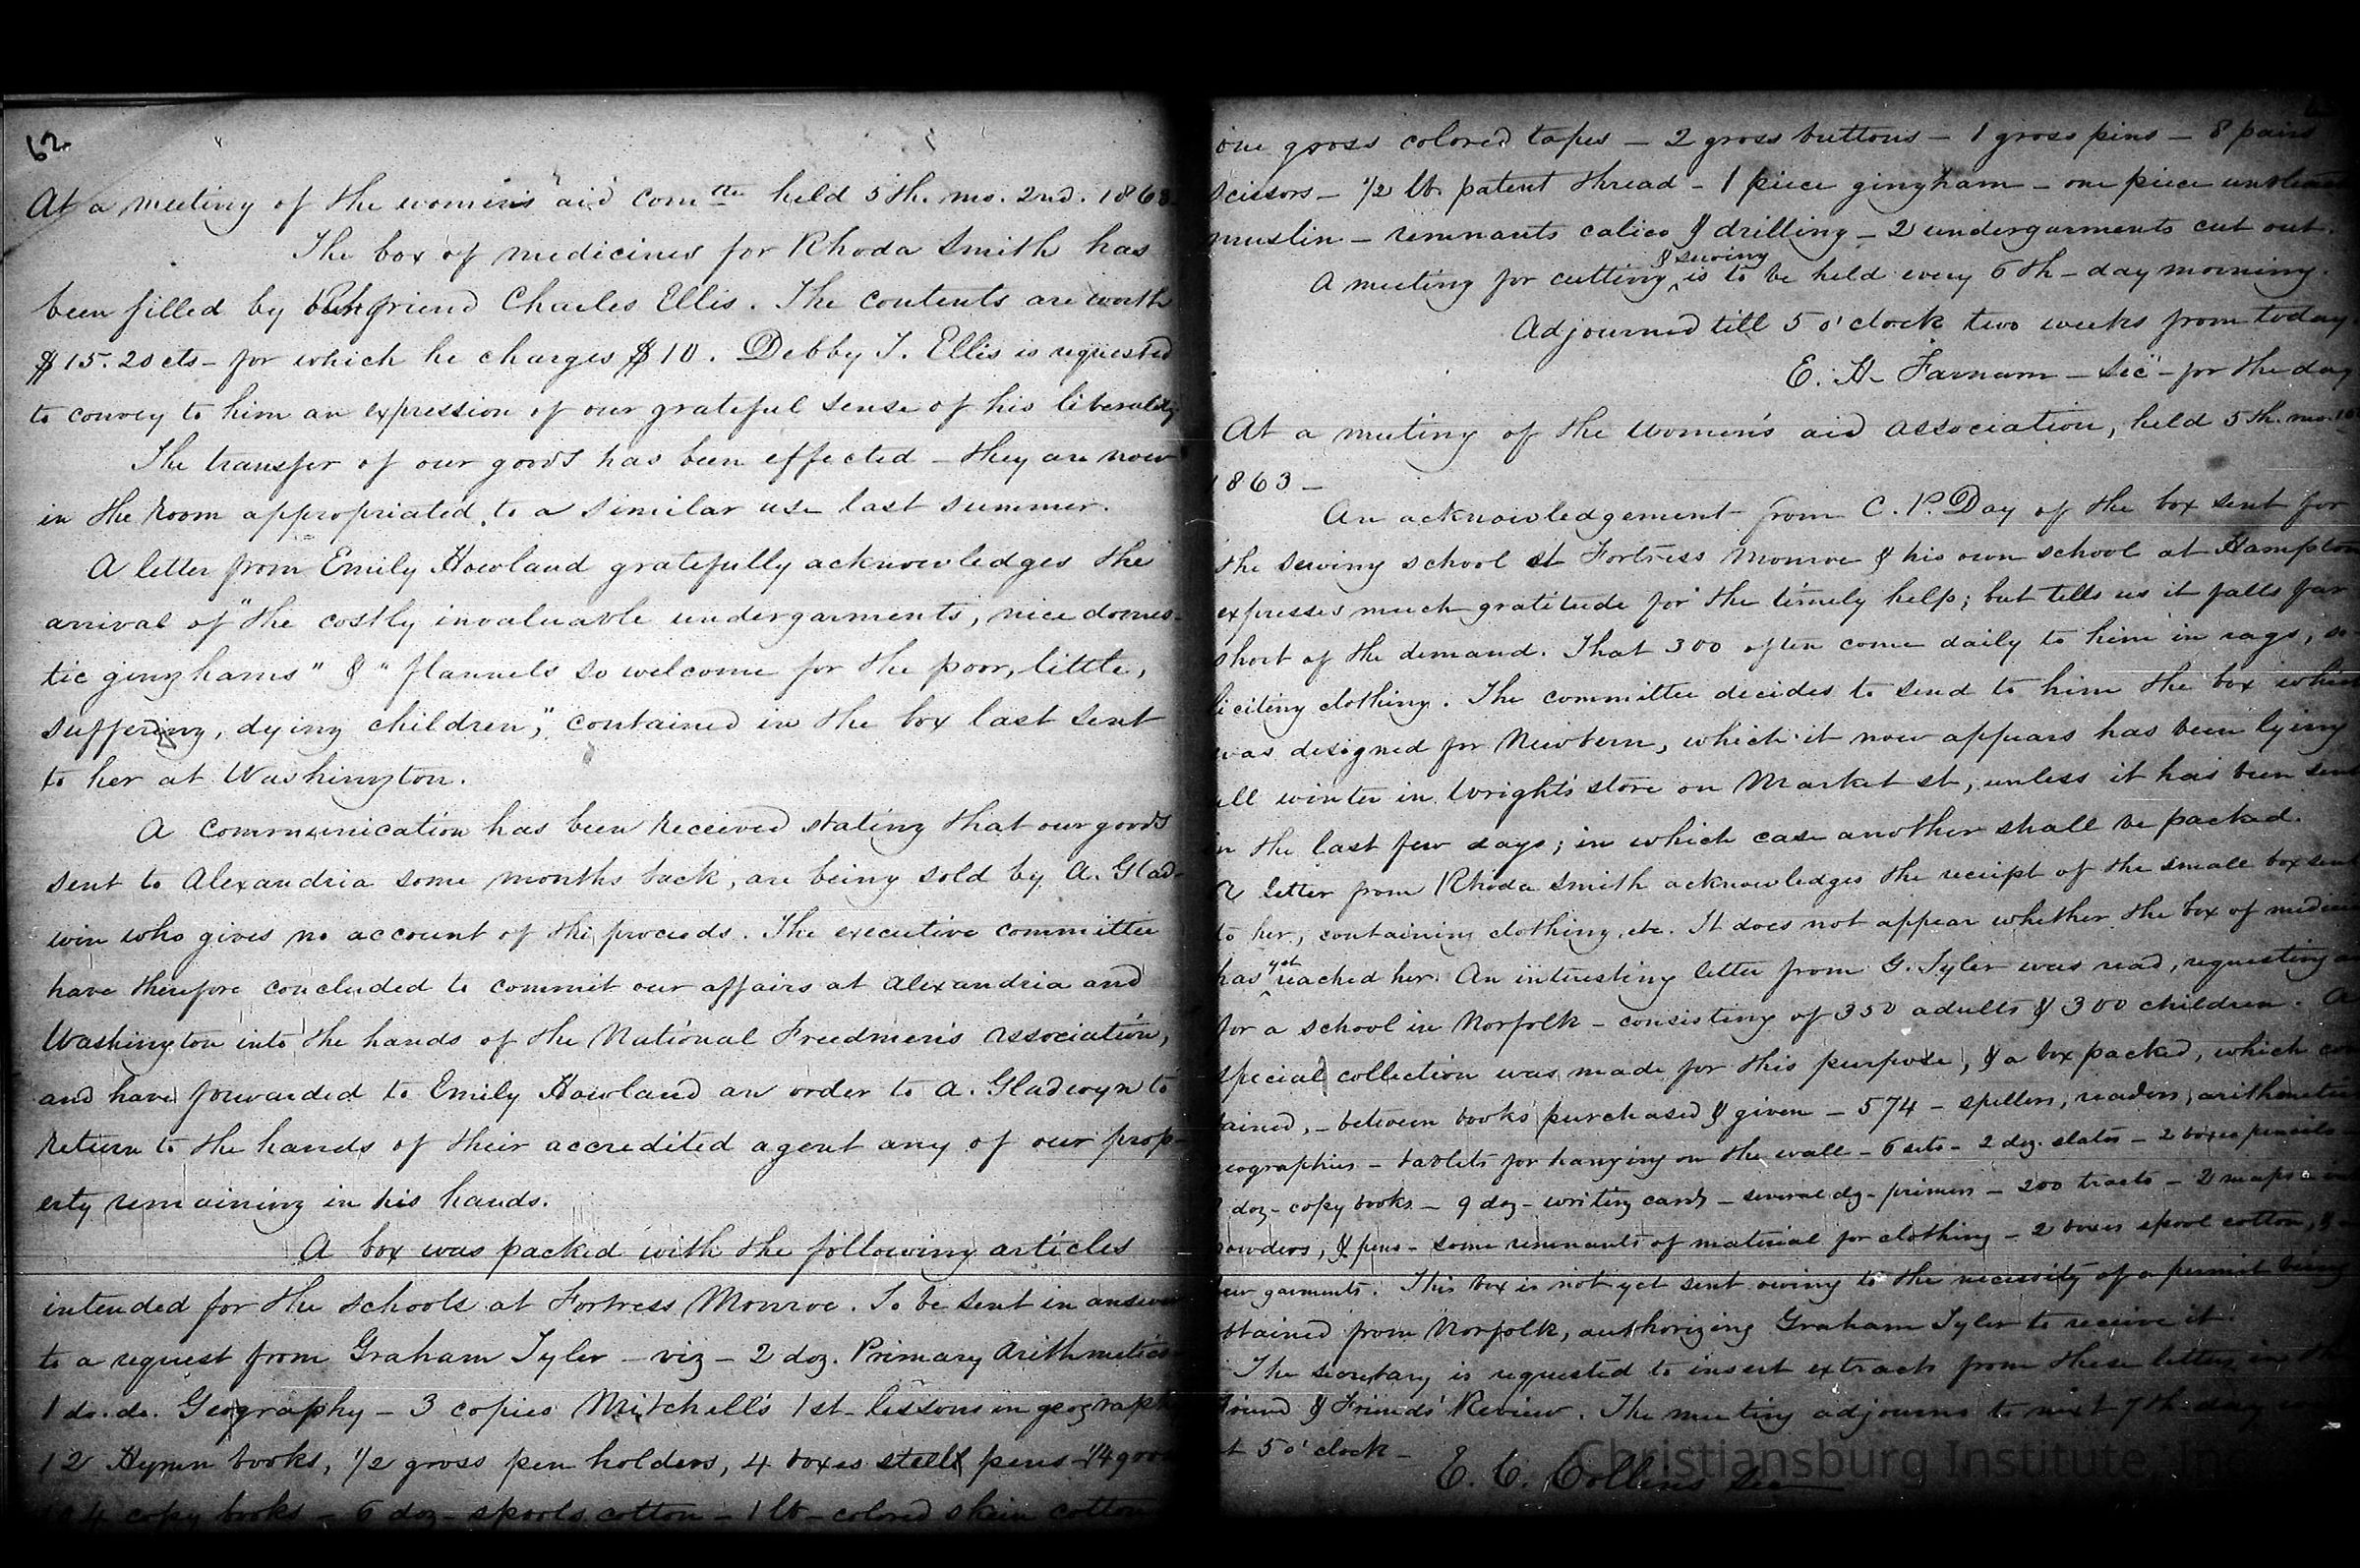 62
At a meeting of the women's aid comttee held 5th. mo. 2nd. 1863.
The box of medicines for Rhoda Smith has
been filled by friend Charles Ellis. The contents are worth
$15.20cts - for which he charges $10. Debby T. Ellis is requested
to convey to him an expression of our grateful sense of his liberality
The transfer of our goods has been effected - they are now
in the room appropriated to a similar use last summer.
A letter from Emily Howland gratefully acknowledges the
arrival of "the costly invaluable undergarments, nice domes-
tic ginghams" & "flannels so welcome for the poor, little,
suffering, dying children," contained in the box last sent
to her at Washington.
A communication has been received stating that our goods
sent to Alexandria some months back, are being sold by A. Glad-
win who gives no account of the proceeds. The executive committee
have therefore concluded to commit our affairs at Alexandria and
Washington into the hands of the National Freedmen's Association,
and have forwarded to Emily Howland an order to A. Gladwyn to
return to the hands of their accredited agent any of our prop-
erty remaining in his hands.
A box was packed with the following articles
intended for the schools at Fortress Monroe. To be sent in answer
to a request from Graham Tyler - viz - 2 doz. Primary Arithmetics
1 do. do. Geography - 3 copies Mitchell's 1st - lessons in geography
12 Hymn books, 1/2 gross pen holders, 4 boxes steel pens - 1/4 gross
4 copy books - 6 doz - spools cotton - 1 lb - colored skein cotton
one gross colored tapes - 2 gross buttons - 1 gross pins - 8 pairs
scissors - 1/2 lb. patent thread - 1 piece gingham - one piece
muslin - remnants calico & drilling - 2 undergarments cut out.
A meeting for cutting & sewing is to be held every 6th - day morning.
Adjourned till 5 o'clock two weeks from today.
E. H. Farnam - Sec - for the day
At a meeting of the Women's aid association, held 5th. mo. 16
1863 -
An acknowledgement from C. P. Day of the box sent for
the sewing school at Fortress Monroe & his own school at Hampton
expresses much gratitude for the timely help; but tells us it falls far
short of the demand. That 300 often come daily to him in rags, so-
liciting clothing. The committee decides to send to him the box which
was designed for Newbern, which it now appears has been lying
all winter in Wright's store on Market st, unless it has been sent
in the last few days; in which case another shall be packed.
A letter from Rhoda Smith acknowledges the receipt of the small box sent
to her, containing clothing, etc. It does not appear whether the box of medicine
has yet reached her. An interesting letter from G. Tyler was read, requesting
for a school in Norfolk - consisting of 350 adults & 300 children. A
special collection was made for this purpose, & a box packed, which con
tained, - between books purchased & given - 574 - spellers, readers, arithmetics
geographies - tablets for hanging on the wall - 6 sets - 2 doz. slates - 2 boxes pencils -
doz - copy books - 9 doz - writing cards - several dz - primers - 200 tracts - 2 maps -
powders, & pens - some remnants of material for clothing - 2 boxes spool cotton, &
new garments. This box is not yet sent owing to the necessity of a permit being
obtained from Norfolk, authorizing Graham Tyler to receive it.
The secretary is requested to insert extracts from these letters in the
Friend & Friends' Review. The meeting adjourns to next 7th day
at 5 o'clock -
E. C. Collins Sec
Christiansburg Institute, Inc